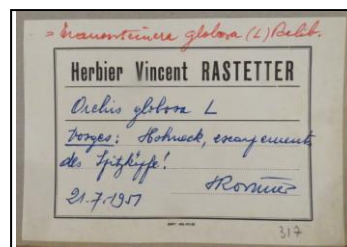 = Traunsteinera globosa (L) Reichb.
Herbier Vincent RASTETTER
Orchis globosa L
Vosges: Hohneck, escarpements
des Spitzköpfe!
21.7.1951
317